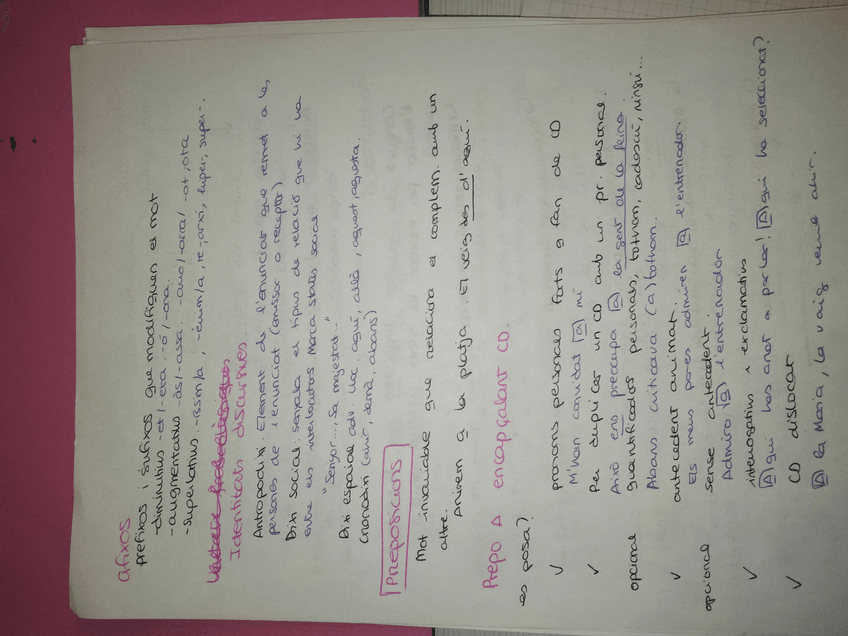 afixos
prefixos i sufixos que modifiquen el mot
-diminutius -et/-eta -ó/-ona.
-augmentatius -às/-assa -arro/-arra/-ot,ota
-superlatius -íssim/a, -èrrim/a, re-, arxi, hiper, super-.
Identitats discursives.
Antropodixi. Element de l'enunciat que remet a les
persones de l'enunciat (emissor o receptor)
Dixi social: senyala el tipus de relació que hi ha
entre els interlocutors Marca stats social
"Senyor..., Sa majestat..."
Dixi espaial adv. lloc. aquí, allà, aquest, aquesta.
Cronodixi (ahir, demà, abans)
PREPOSICIONS
Mot invariable que relaciona el complem. amb un
altre.
Anirem a la platja. El veig des d'aquí.
Prepo A encapçalant CD.
es posa?
✓ pronoms personals forts q fan de CD
M'han convidat a mi
✓ Per duplicar un CD amb un pr. personal.
Això ens preocupa a la gent de la feina.
opcional quantificadors personals, tothom, cadascú, ningú...
Abans criticava (a) tothom.
✓ antecedent animat.
Els meus pares admiren a l'entrenador.
opcional sense antecedent.
Admiro a l'entrenador
✓ interrogatius i exclamatius
A qui has anat a parlar! A qui ha seleccionat?
✓ CD dislocat
A la Maria, la vaig veure ahir.